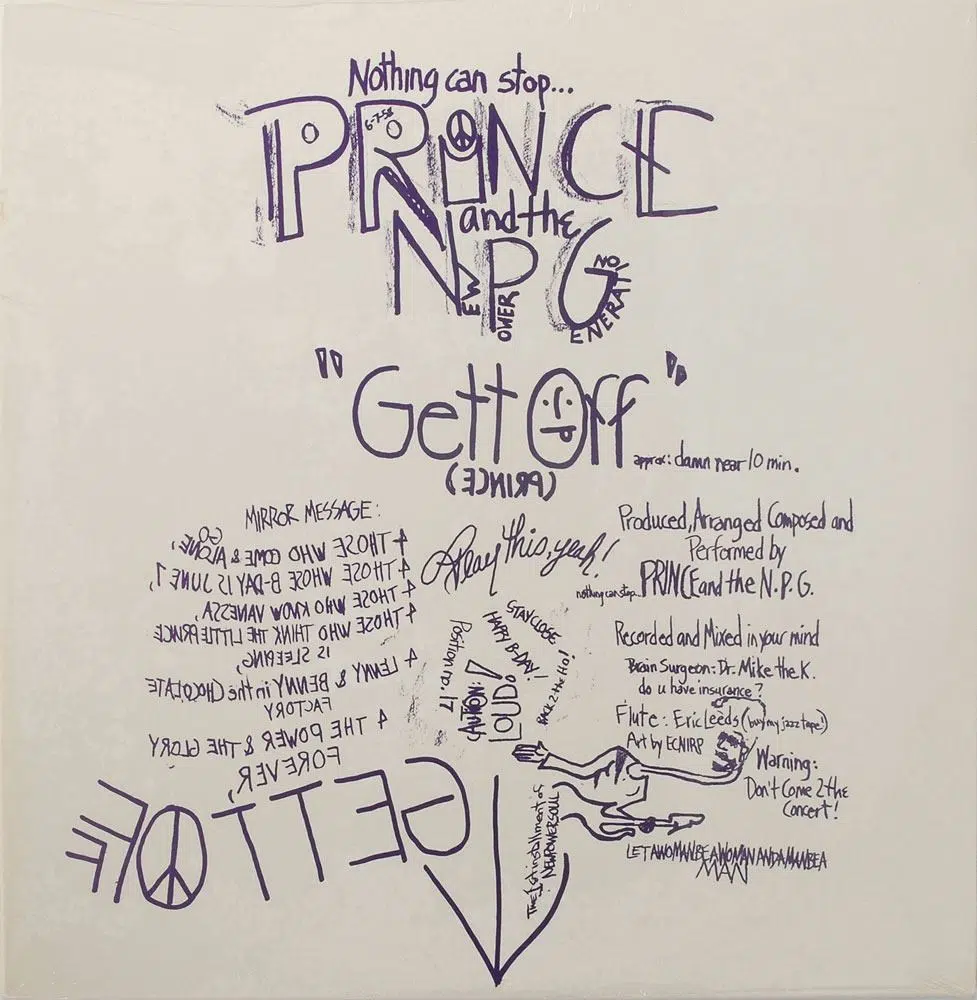 Nothing can stop...
PRINCE
6-7-58
and the
NPG
NEW POWER GENERATION
"Gett Off"
approx: damn near 10 min.
(PRINCE)
MIRROR MESSAGE:
4 THOSE WHO COME & GO ALONE,
4 THOSE WHOSE B-DAY IS JUNE 7,
4 THOSE WHO KNOW VANESSA,
4 THOSE WHO THINK THE LITTLE PRINCE
IS SLEEPING,
4 LENNY & BENNY in the CHOCOLATE
FACTORY
4 THE POWER & THE GLORY
FOREVER,
GETT OFF
Play this, yeah!
STAY CLOSE
HAPPY B-DAY!
Position no. 17
CAUTION:
LOUD!
BACK 2 the Ho!
Produced, Arranged Composed and
Performed by
nothing can stop... PRINCE and the N.P.G.
Recorded and Mixed in your mind
Brain Surgeon: Dr. Mike the K.
do u have insurance?
Flute: Eric Leeds (buy my jazz tape!)
Art by ECNIRP
Warning:
Don't Come 2 the
Concert!
THE 1st installment of
NEW POWER SOUL
LET A WOMAN BE A WOMAN AND A MAN BE A
MAN